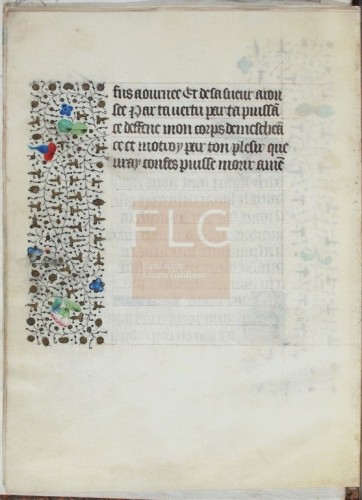 fus aournee Et de sa sueur arou
see Par ta vertu par ta puissā
ce deffent mon corps de mescheā
ce et motroy par ton plesir que
vray confes puisse morir amē
FLG
Fundación
Lázaro Galdiano